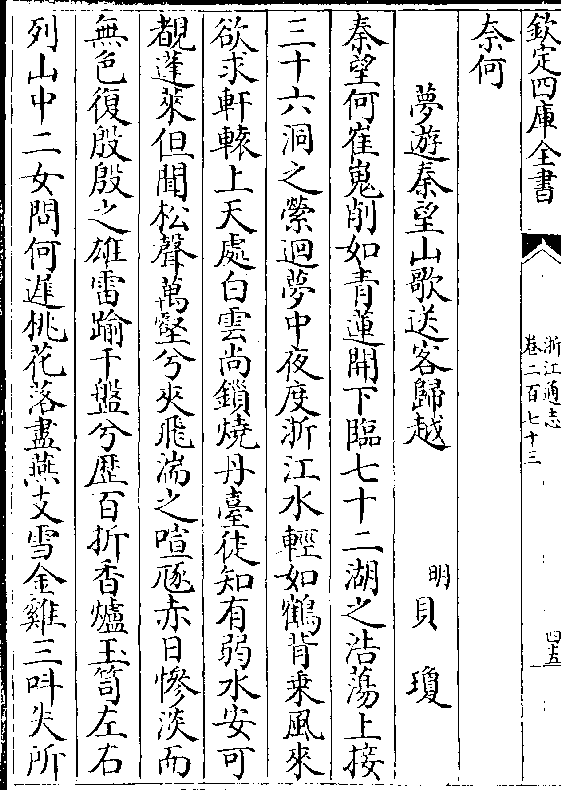 欽定四庫全書
浙江通志
卷二百七十三
四五
奈何
夢遊秦望山歌送客歸越
明
貝瓊
秦望何崔嵬削如青蓮開下臨七十二湖之浩蕩上接
三十六洞之縈迴夢中夜度浙江水輕如鶴背乗風來
欲求軒轅上天處白雲尚鎖燒丹臺徒知有弱水安可
覩蓬萊但聞松聲萬壑兮夾飛湍之喧豗赤日慘淡而
無色復殷殷之雄雷踰千盤兮歴百折香爐玉笥左右
列山中二女問何遲桃花落盡燕支雪金雞三呌失所